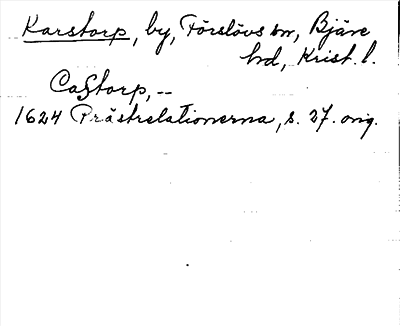 Karstorp, by, Förslövs sn, Bjäre
hd, Krist. l.
Caßtorp, --
1624 Prästrelationerna, s. 27. orig.